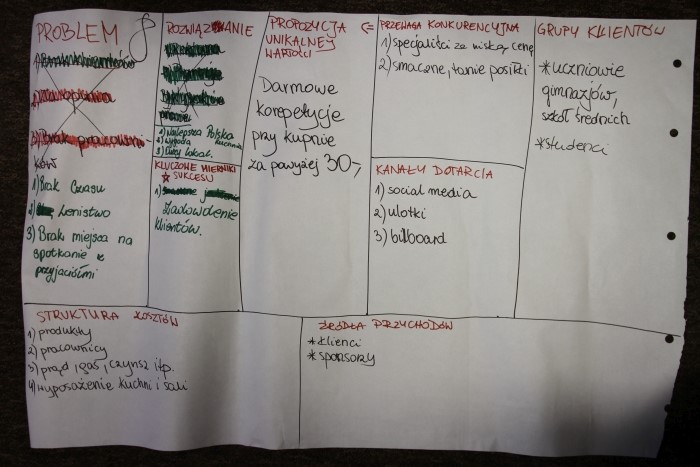 PROBLEM
ków
1) Brak Czasu
2) Lenistwo
3) Brak miejsca na
spotkanie z
przyjaciółmi
ROZWIĄZANIE
1) Najlepsza Polska
2) Wygoda kuchnia
3) Luźny lokal.
KLUCZOWE MIERNIKI
SUKCESU
1)
Zadowolenie
klientów.
PROPOZYCJA
UNIKALNEJ
WARTOŚCI
Darmowe
korepetycje
przy kupnie
za powyżej 30,-
PRZEWAGA KONKURENCYJNA
1) specjaliści za niską cenę
2) smaczne, tanie posiłki
KANAŁY DOTARCIA
1) social media
2) ulotki
3) billboard
GRUPY KLIENTÓW
* uczniowie
gimnazjów,
szkół średnich
* studenci
STRUKTURA KOSZTÓW
1) produkty
2) pracownicy
3) prąd, gas, czynsz itp.
4) wyposażenie kuchni i sali
ŹRÓDŁA PRZYCHODÓW
* klienci
* sponsorzy